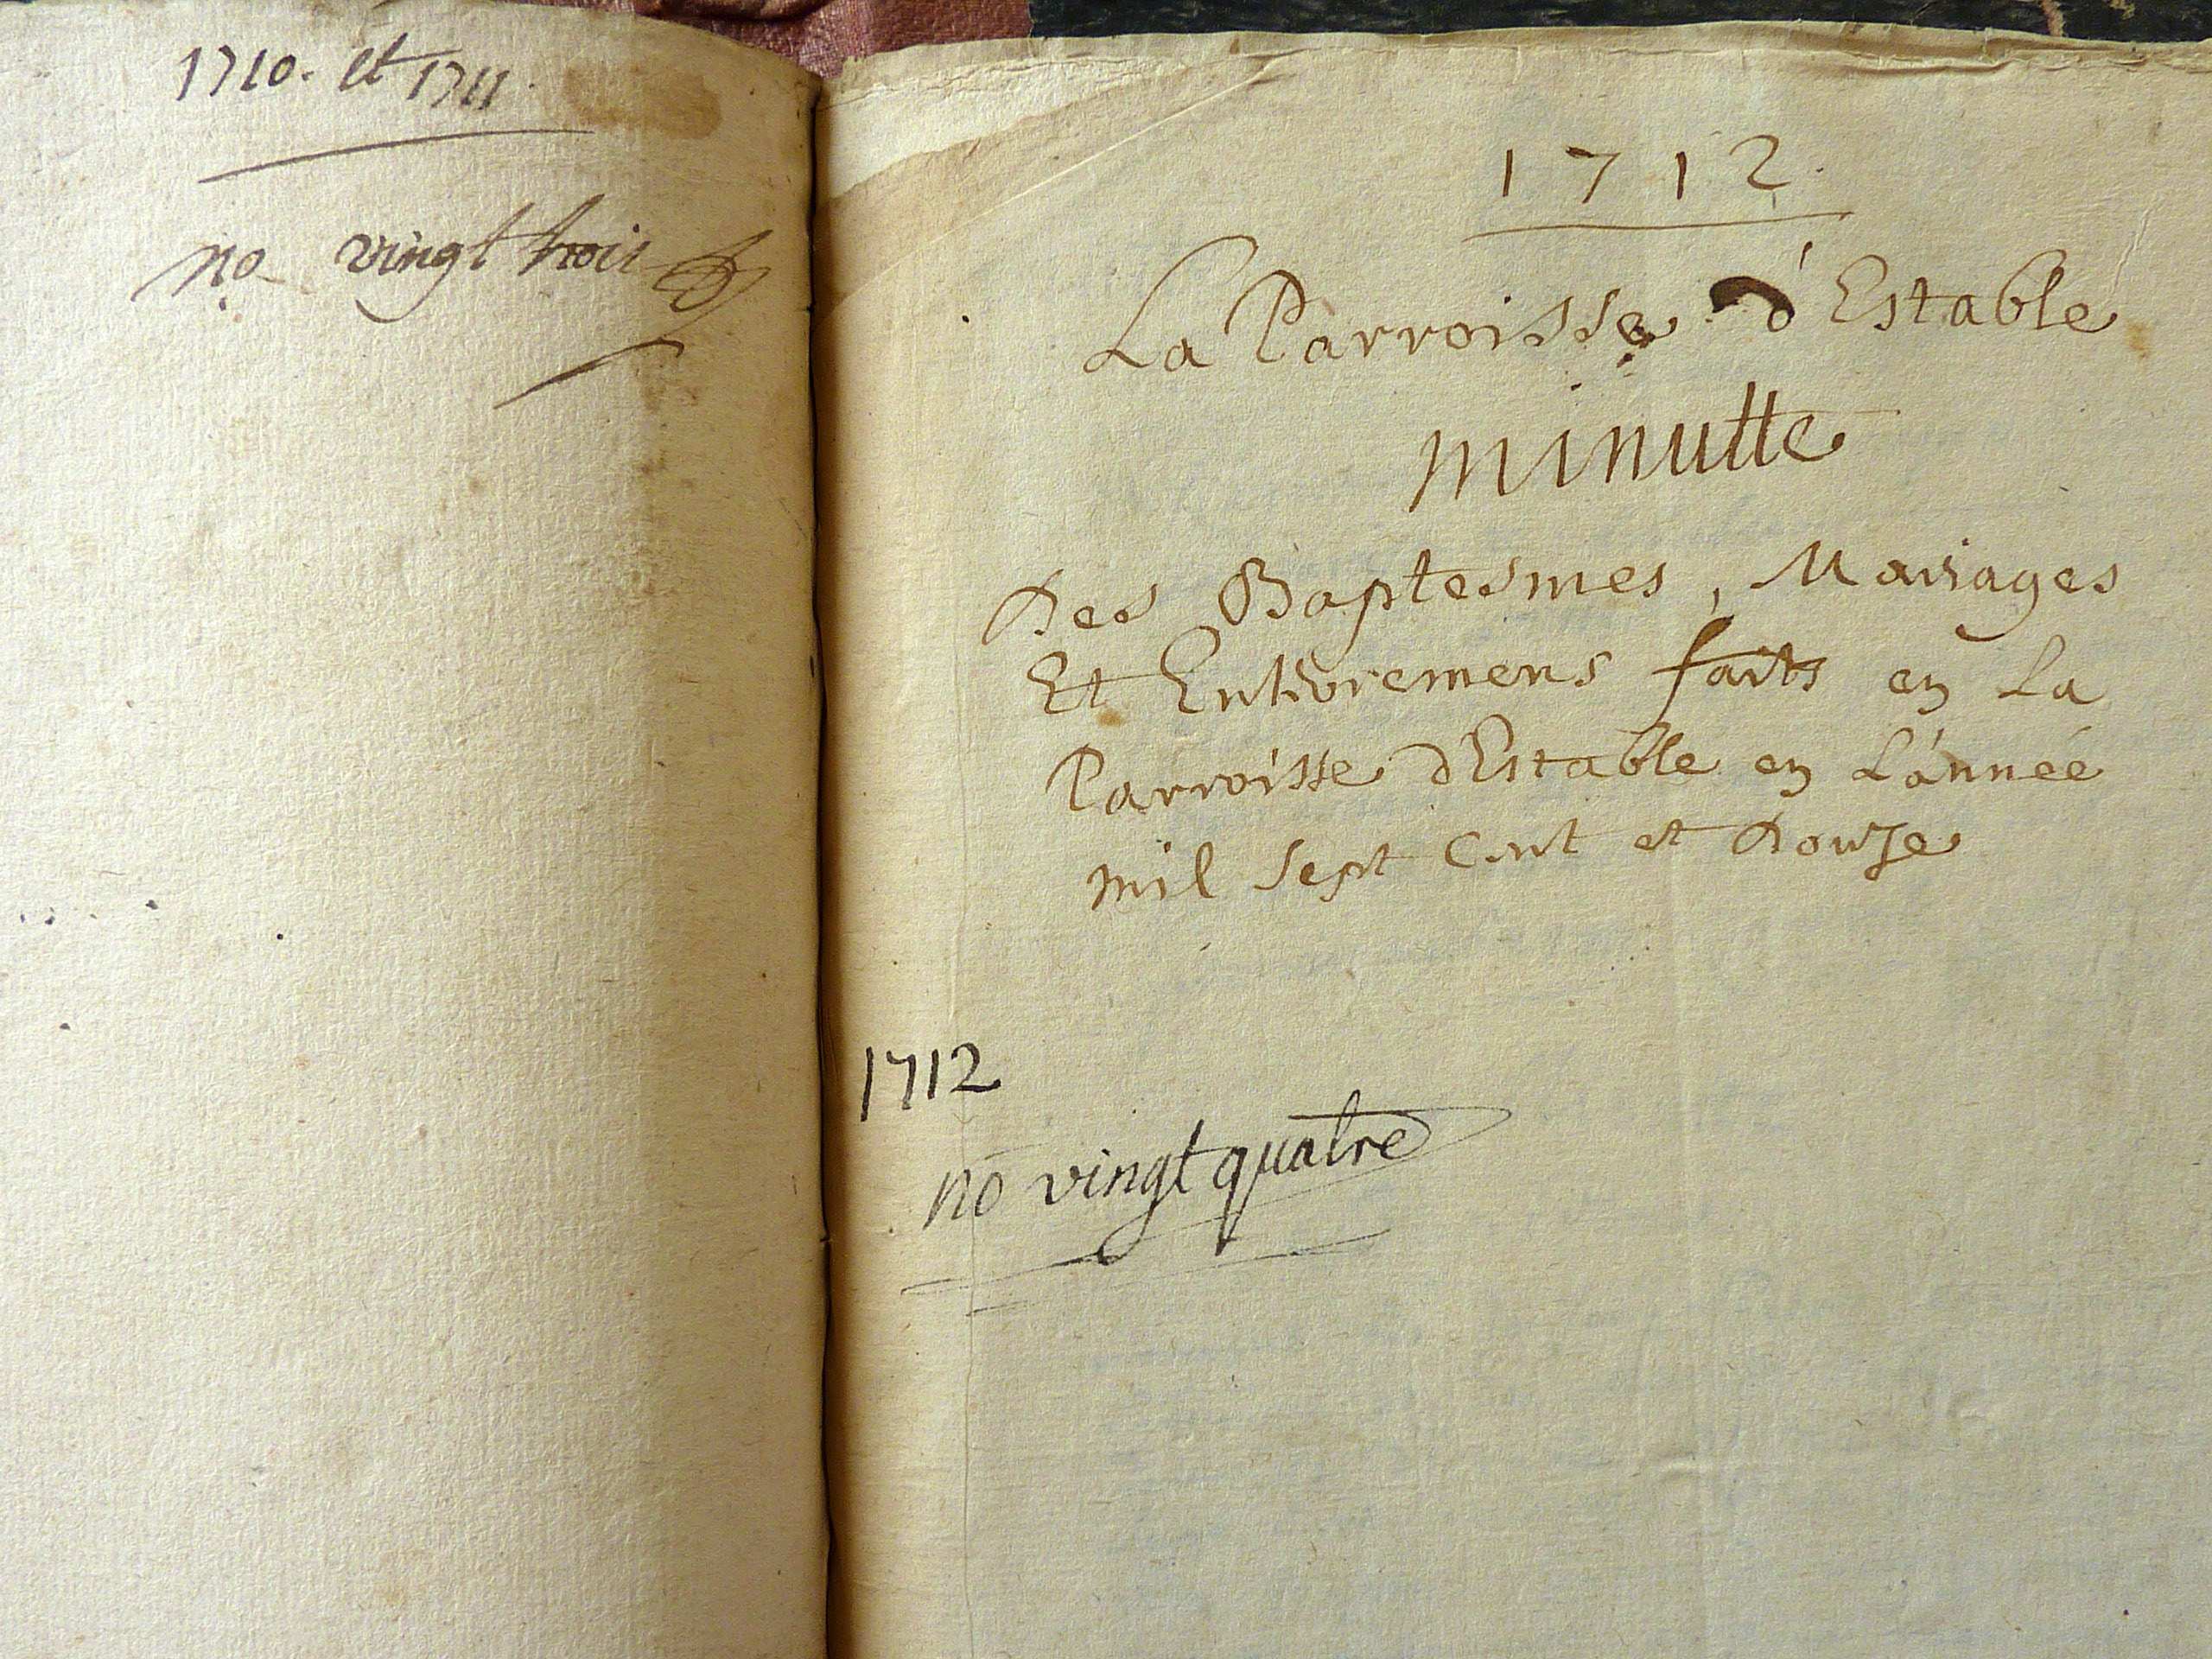 1710. et 1711.
no vingt trois
1712.
La Parroisse d'Estable
minutte
Des Baptesmes, Mariages
Et Enterremens faits en La
Parroisse d'Estable en L'année
mil sept Cent et Douze
1712
no vingt quatre